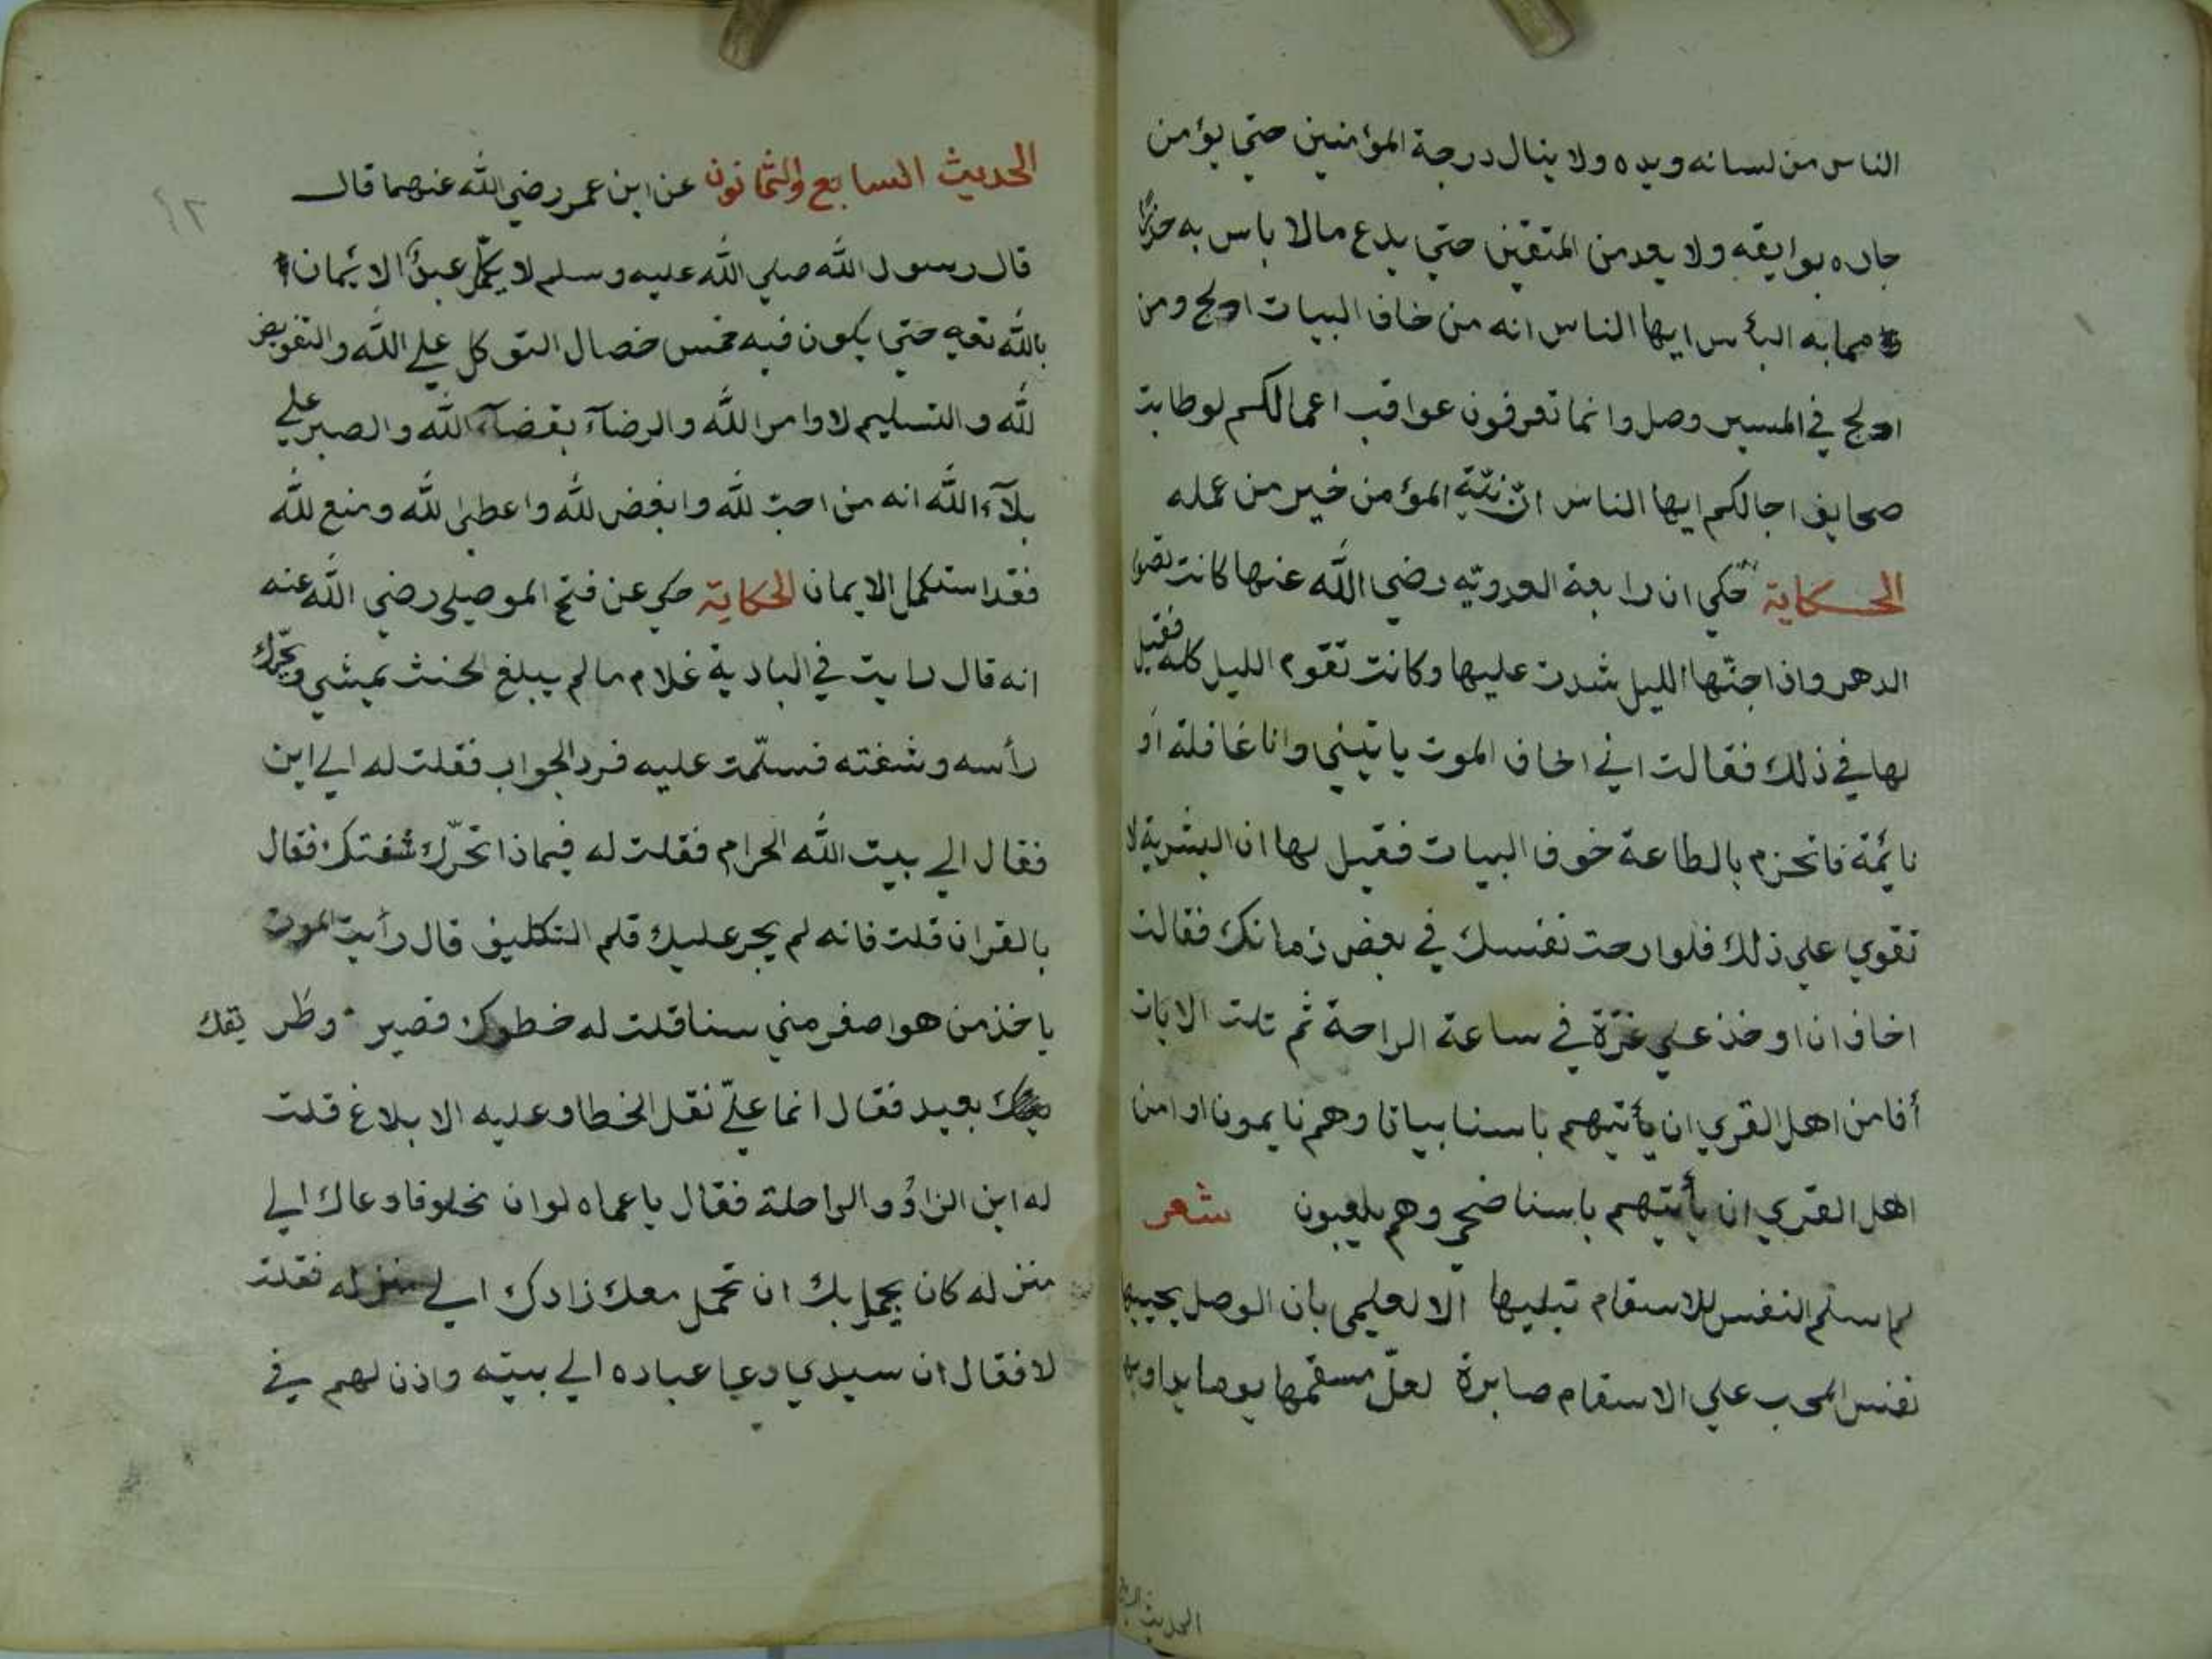 الناس من لسانه ويده ولا ينال درجة المؤمنين حتي يؤمن
جاره بوايقه ولا يعد من المتقين حتي يدع مالا باس به حذرًا
مما به البأس ايها الناس انه من خاف البيات ادلج ومن
ادلج في المسير وصل وانما تعرفون عواقب اعمالكم لو طابت
صحايف اجالكم ايها الناس انّ نيّة المؤمن خير من عمله
الحكاية حكي ان رابعة العدويّه رضي الله عنها كانت تصوم
الدهر واذا جنّها الليل شدت عليها وكانت تقوم الليل كله فقيل
لها في ذلك فقالت اني اخاف الموت ياتيني وانا غافلة او
نائمة فاتحزم بالطاعة خوف البيات فقيل لها ان البشرية لا
تقوي علي ذلك فلو ارحت نفسك في بعض زمانك فقالت
اخاف ان اوخذ علي غرّة في ساعة الراحة ثم تلت الايات
أفامن اهل القري ان يأتيهم باسنا بياتا وهم نايمون او امن
اهل القري ان يأتيهم باسنا ضحي وهم يلعبون شعر
لم سلم النفس للاسقام تبليها الا لعلمي بان الوصل يحييها
نفس المحب علي الاسقام صابرة لعلّ مسقمها يوما يداويها
الحديث
٩٢
الحديث السابع والثمانون عن ابن عمر رضي الله عنهما قال
قال رسول الله صلي الله عليه وسلم لا يكمّل عبدٌ الايمان
بالله تعه حتي يكون فيه خمس خصال التوكل علي الله والتفويض
لله والتسليم لاوامر الله والرضآء بقضآء الله والصبر علي
بلآء الله انه من احب لله وابغض لله واعطي لله ومنع لله
فقد استكمل الايمان الحكاية حكي عن فتح الموصلي رضي الله عنه
انه قال رايت في البادية غلام مالم يبلغ الحنث يمشي ويحرّك
رأسه وشفته فسلّمت عليه فرد الجواب فقلت له الي اين
فقال الي بيت الله الحرام فقلت له فيماذا تحرّك شفتك فقال
بالقران قلت فانه لم يجر عليك قلم التكليف قال رأيت الموت
ياخذ من هو اصغر مني سنا قلت له خطوك قصير وطر يقك
بعيد فقال انما عليّ نقل الخطا وعليه الابلاغ قلت
له اين الزاد والراحلة فقال يا عماه لو ان مخلوقا دعاك الي
منزله كان يجمل بك ان تحمل معك زادك الي منزله فقلت
لا فقال ان سيدي دعا عباده الي بيته واذن لهم في